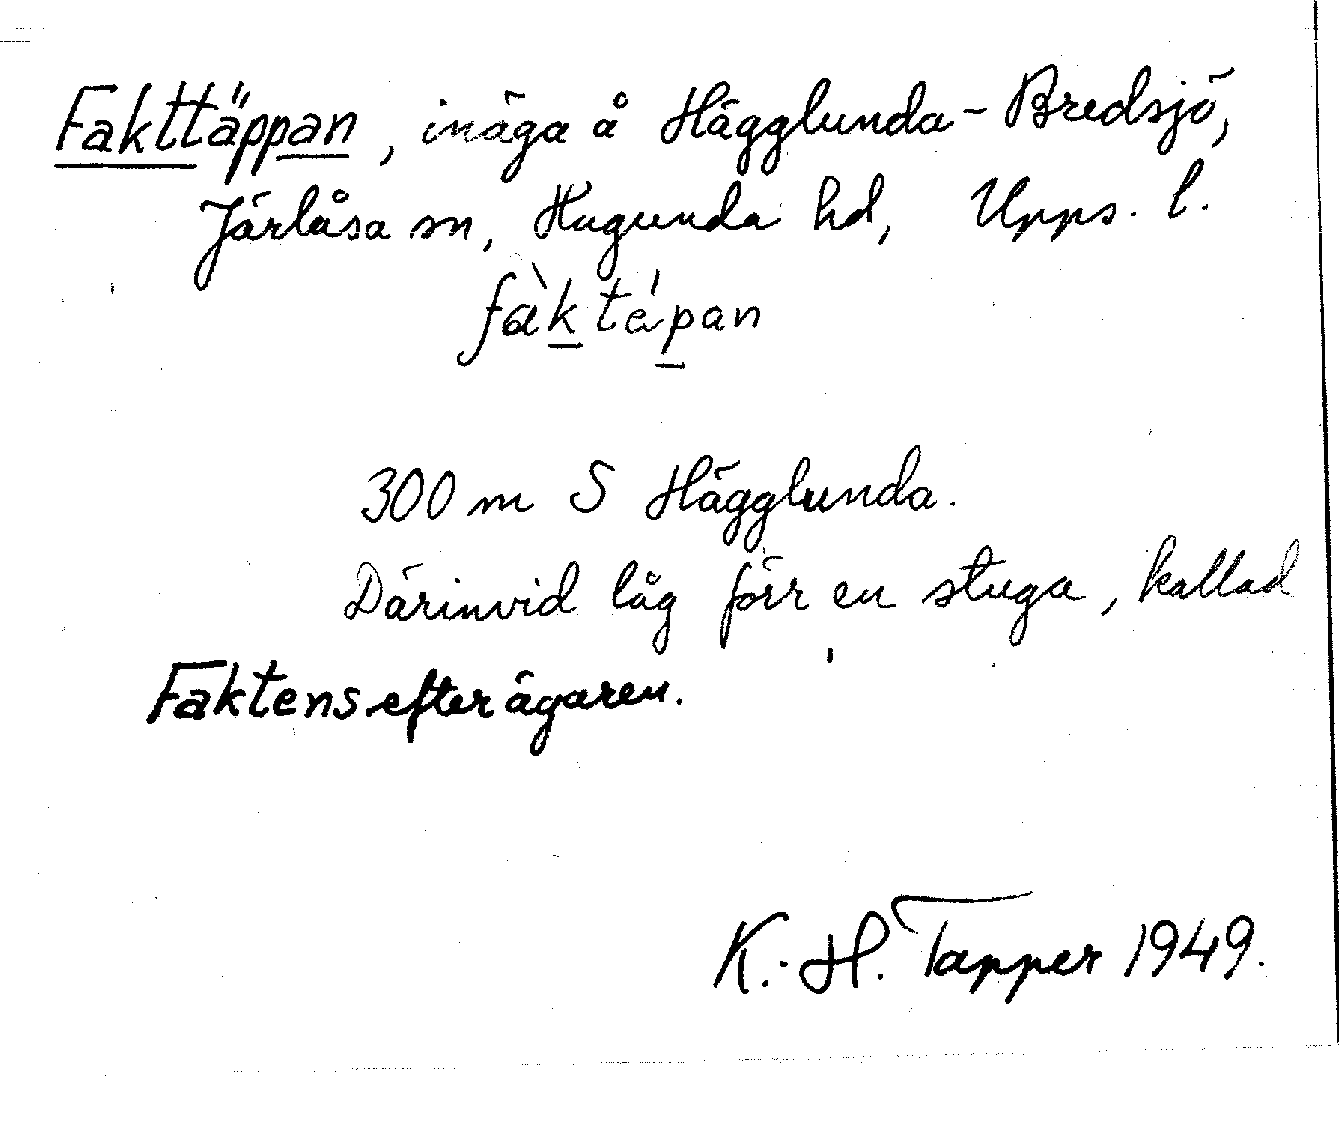 Fakttäppan, inäga å Hägglunda-Bredsjö,
Järlåsa sn, Hagunda hd, Upps. l.
fàktépan
300 m S Hägglunda.
Därinvid låg förr en stuga, kallad
Faktens efter ägaren.
K.-H. Tapper 1949.